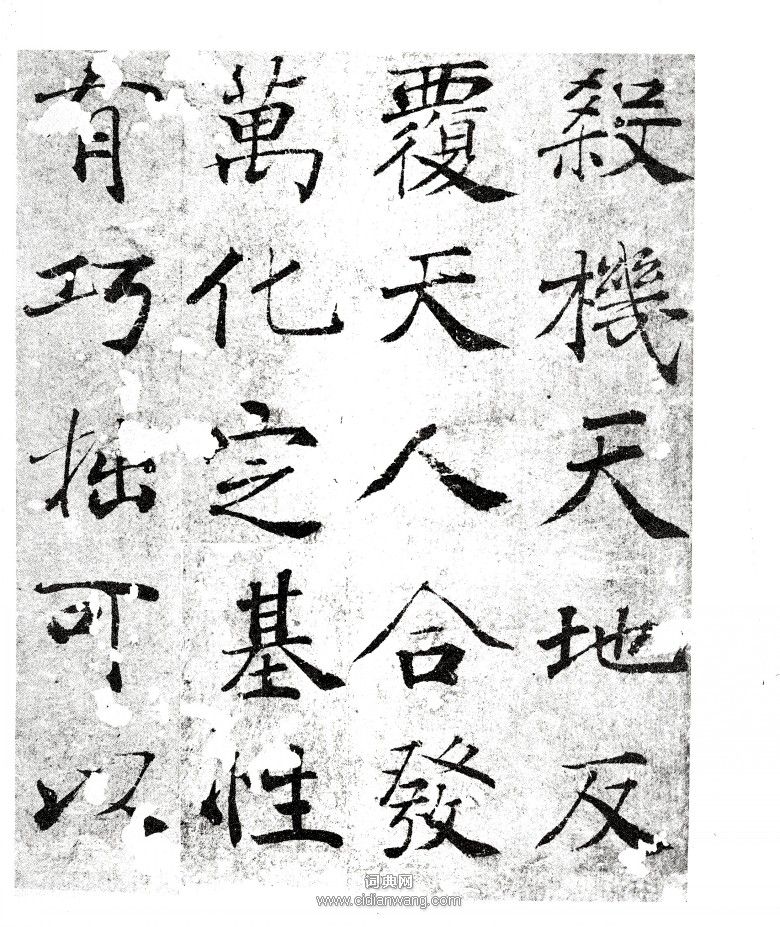 殺機天地反
覆天人合發
萬化定基性
有巧拙可以
词典网
www.cidianwang.com